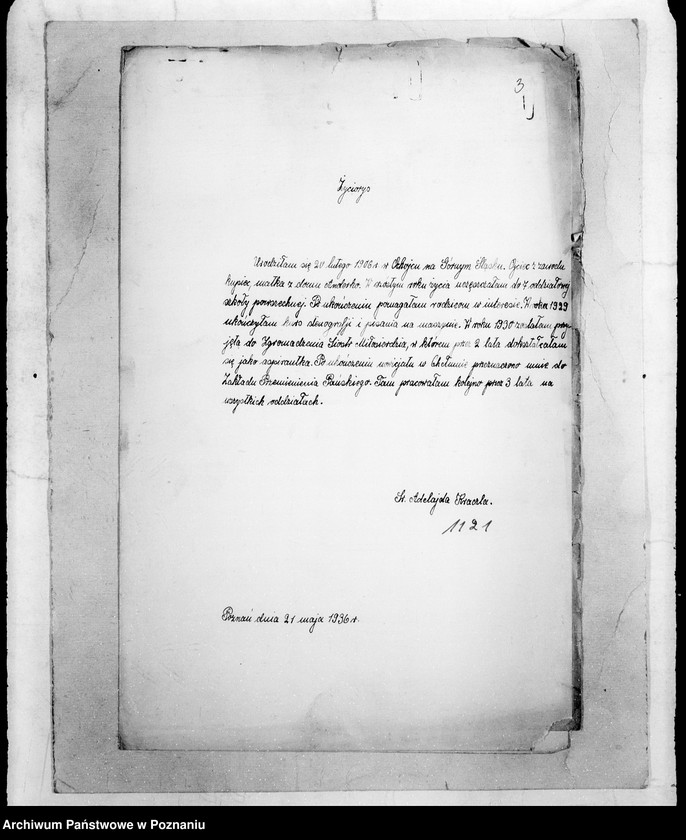 3
Życiorys
Urodziłam się 20 lutego 1906 r. w Ochojcu na Górnym Śląsku. Ojciec z zawodu
kupiec, matka z domu. W szóstym roku życia uczęszczałam do 7. oddziałowej
szkoły powszechnej. Po ukończeniu pomagałam rodzicom w interesie. W roku 1929
ukończyłam kurs stenografji i pisania na maszynie. W roku 1930 zostałam przy-
jęta do Zgromadzenia Sióstr Miłosierdzia, w którem przez 2 lata dokształcałam
się jako aspirantka. Po ukończeniu nowicjatu w Chełmnie przeznaczono mnie do
Zakładu Przemienienia Pańskiego. Tam pracowałam kolejno przez 3 lata na
wszystkich oddziałach.
S. Adelajda
1121
Poznań dnia 21 maja 1936 r.
Archiwum Państwowe w Poznaniu